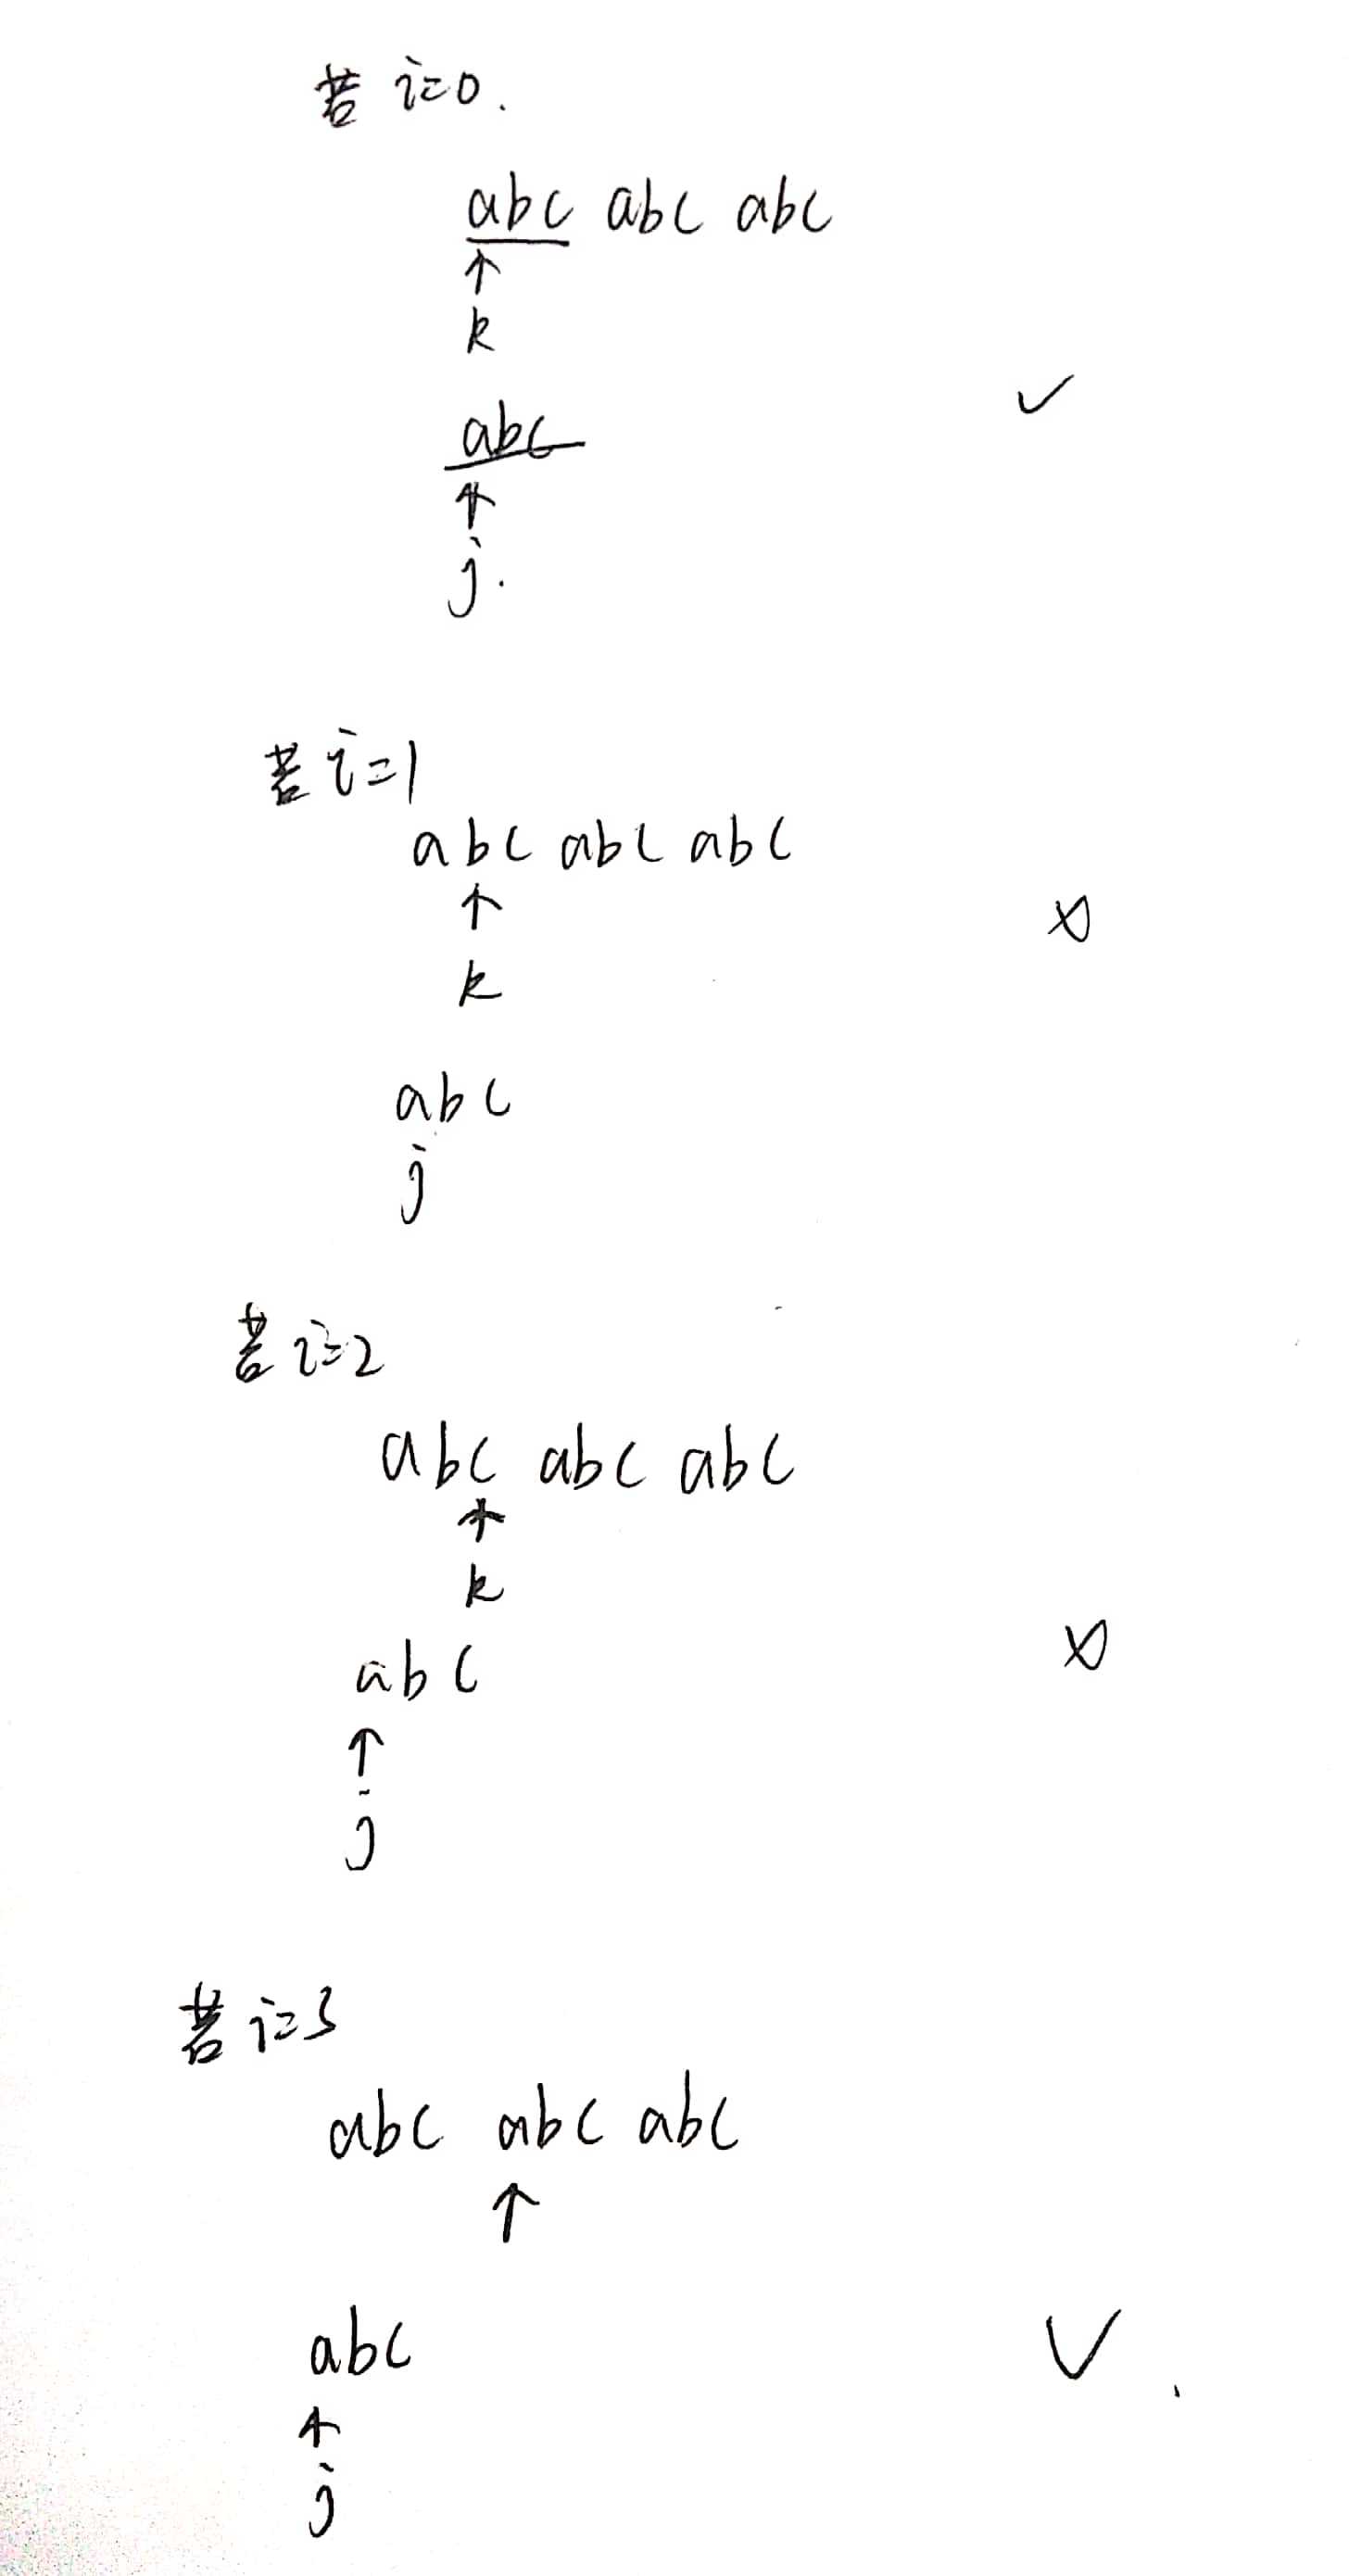 若 i=0.
abc abc abc
k
abc
j.
若 i=1
abc abc abc
k
abc
j
若 i=2
abc abc abc
k
abc
j
若 i=3
abc abc abc
abc
j